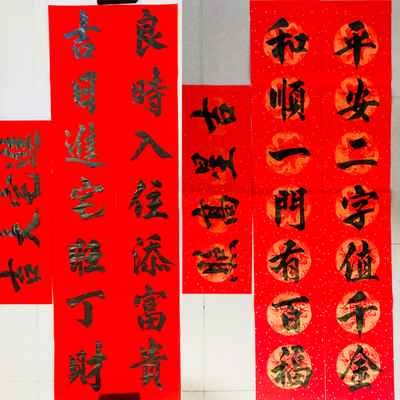 平安二字值千金
和順一門有百福
吉星高照
良時入住添富貴
吉日進宅旺丁財
進宅大吉